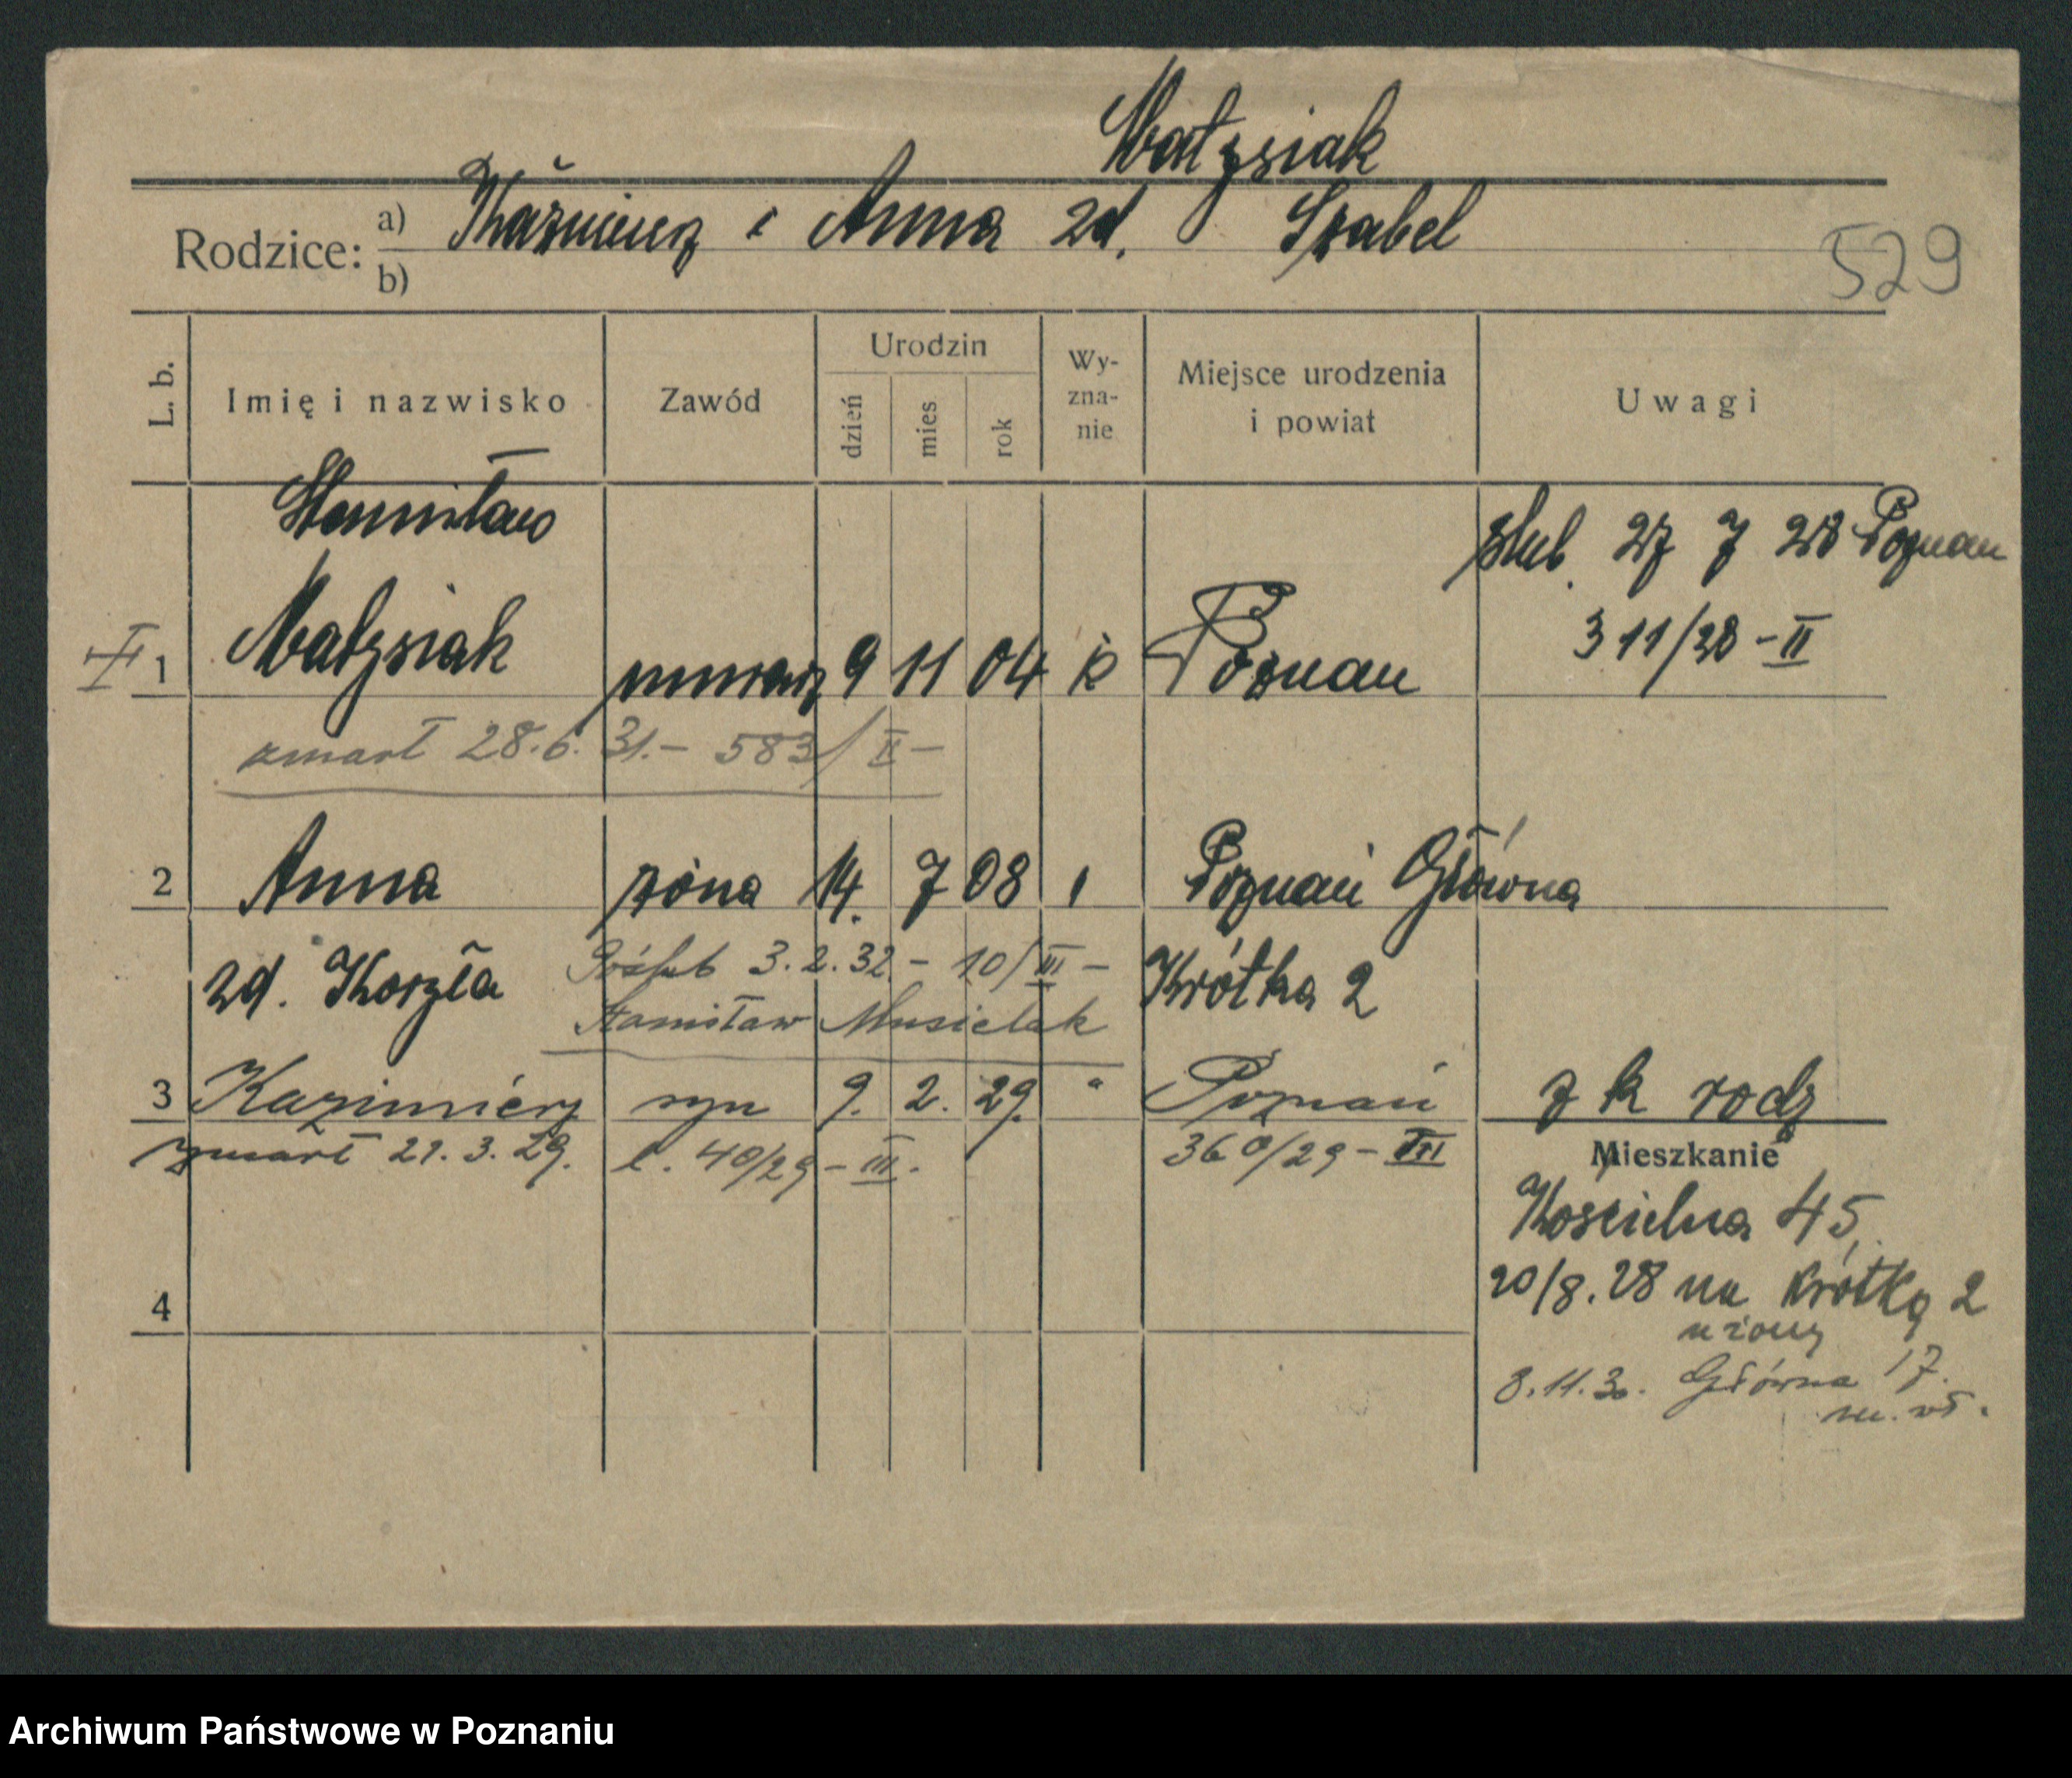 Małysiak
Rodzice: a) Kaźmierz i Anna zd. Szabel
b)
529
L. b. Imię i nazwisko Zawód Urodzin dzień mies rok Wy-zna-nie Miejsce urodzenia i powiat Uwagi
Stanisław
ślub. 27 7 28 Poznan
311/28 - II
1 Małysiak murarz 9 11 04 k Poznan
zmarł 28.6.31. - 583/II -
2 Anna żona 14. 7 08 Poznań Główna
zd. Korzła Krótka 2
3.2.32 - 10/III -
Stanisław Musielak
3 Kazimierz syn 9. 2. 29. " Poznań z k rodz
zmarł 21.3.29. l. 40/29 - III. 360/29 - III
Mieszkanie
Kościelna 45,
4
20/8.28 na Krótką 2
u żony
8.11.30. Główna 17.
Archiwum Państwowe w Poznaniu